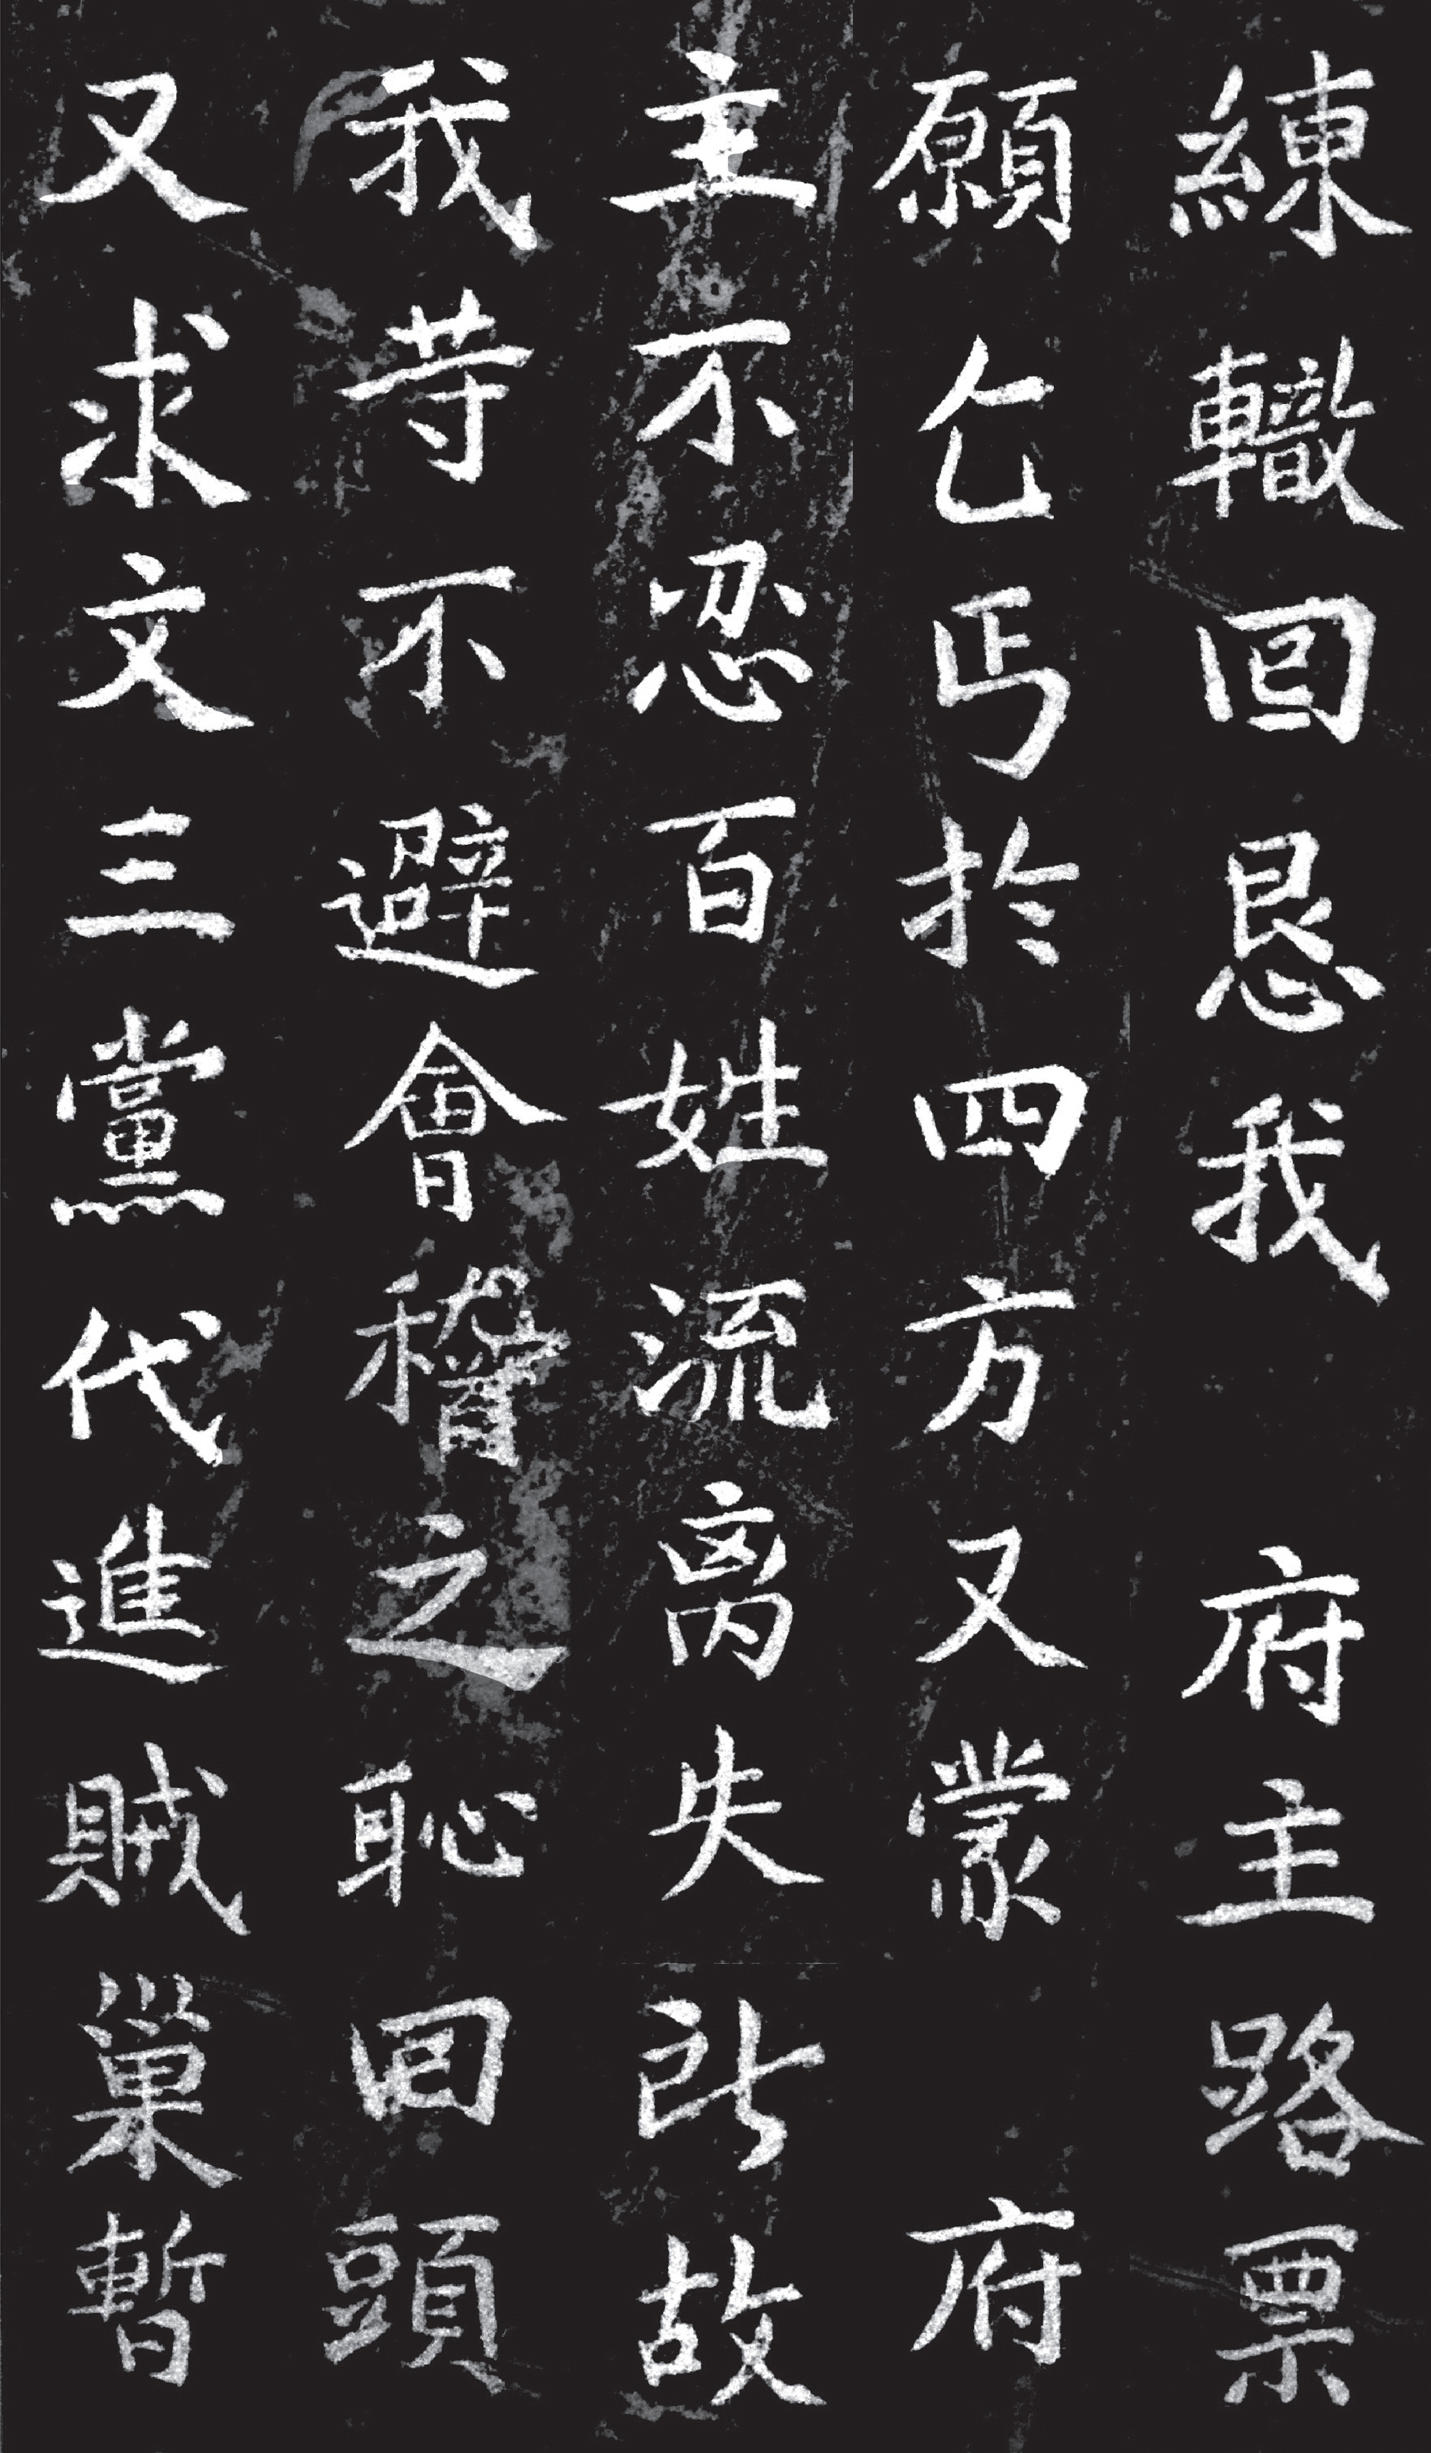 練轍回恳我　府主路票
願乞丐於四方又蒙　府
主不忍百姓流离失所故
我等不避會稽之恥回頭
又求文三黨代進賊巢暫